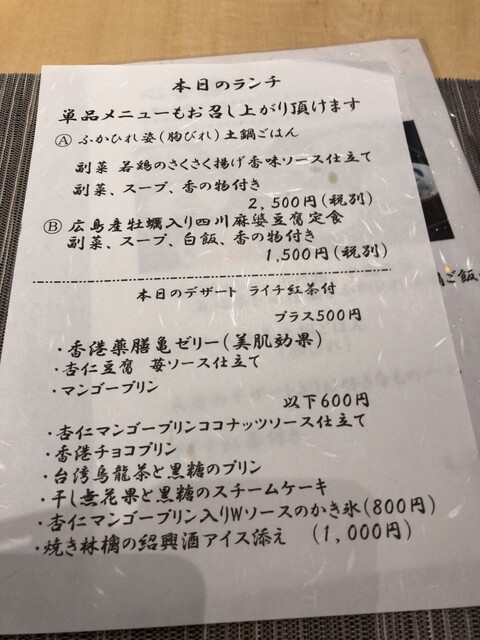 本日のランチ
単品メニューもお召し上がり頂けます
Ⓐ ふかひれ姿(胸びれ)土鍋ごはん
副菜 若鶏のさくさく揚げ香味ソース仕立て
副菜、スープ、香の物付き
2,500円(税別)
Ⓑ 広島産牡蠣入り四川麻婆豆腐定食
副菜、スープ、白飯、香の物付き
1,500円(税別)
本日のデザート ライチ紅茶付
プラス500円
・香港薬膳亀ゼリー(美肌効果)
・杏仁豆腐 苺ソース仕立て
・マンゴープリン
以下600円
・杏仁マンゴープリンココナッツソース仕立て
・香港チョコプリン
・台湾烏龍茶と黒糖のプリン
・干し無花果と黒糖のスチームケーキ
・杏仁マンゴープリン入りWソースのかき氷(800円)
・焼き林檎の紹興酒アイス添え (1,000円)